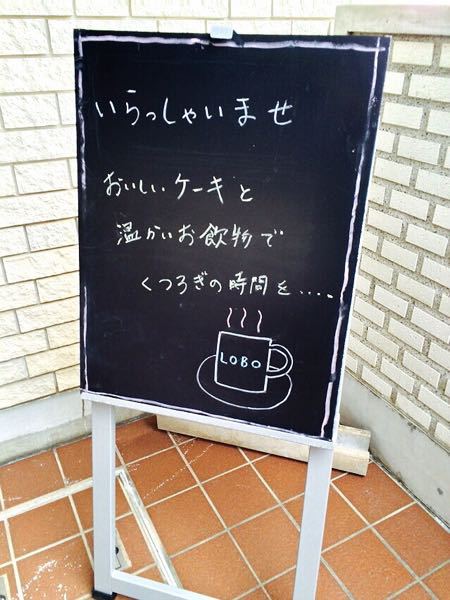 いらっしゃいませ
おいしいケーキと
温かいお飲物で
くつろぎの時間を....
LOBO